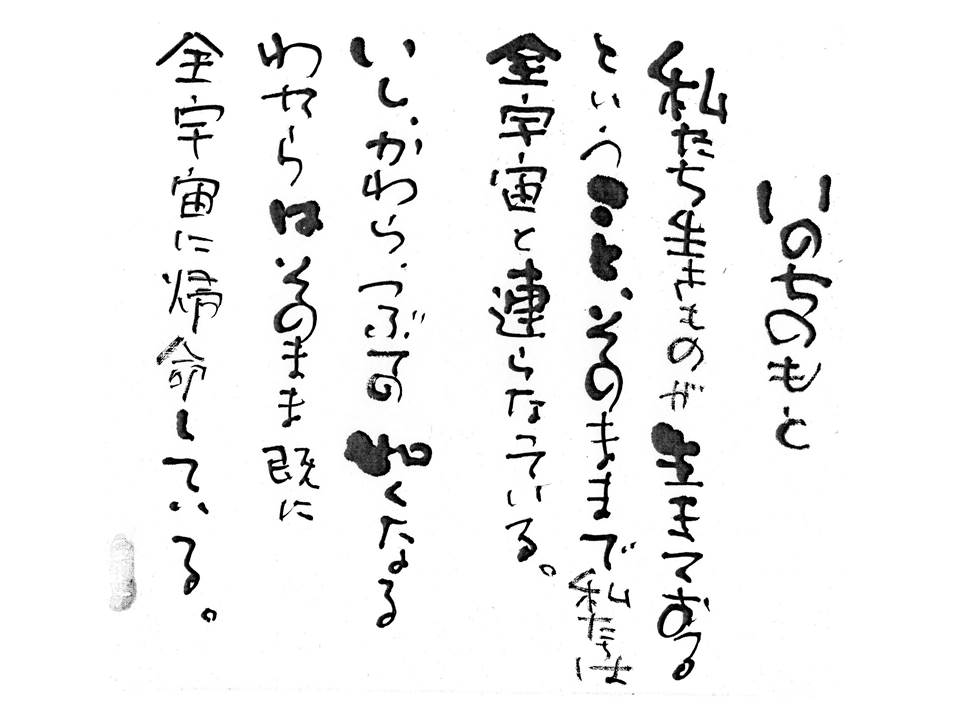 いのちのもと
私たち生きものが生きておる
ということ、そのままで私たちは
全宇宙と連らなっている。
いし、かわら、つぶての如くなる
われらはそのまま既に
全宇宙に帰命している。